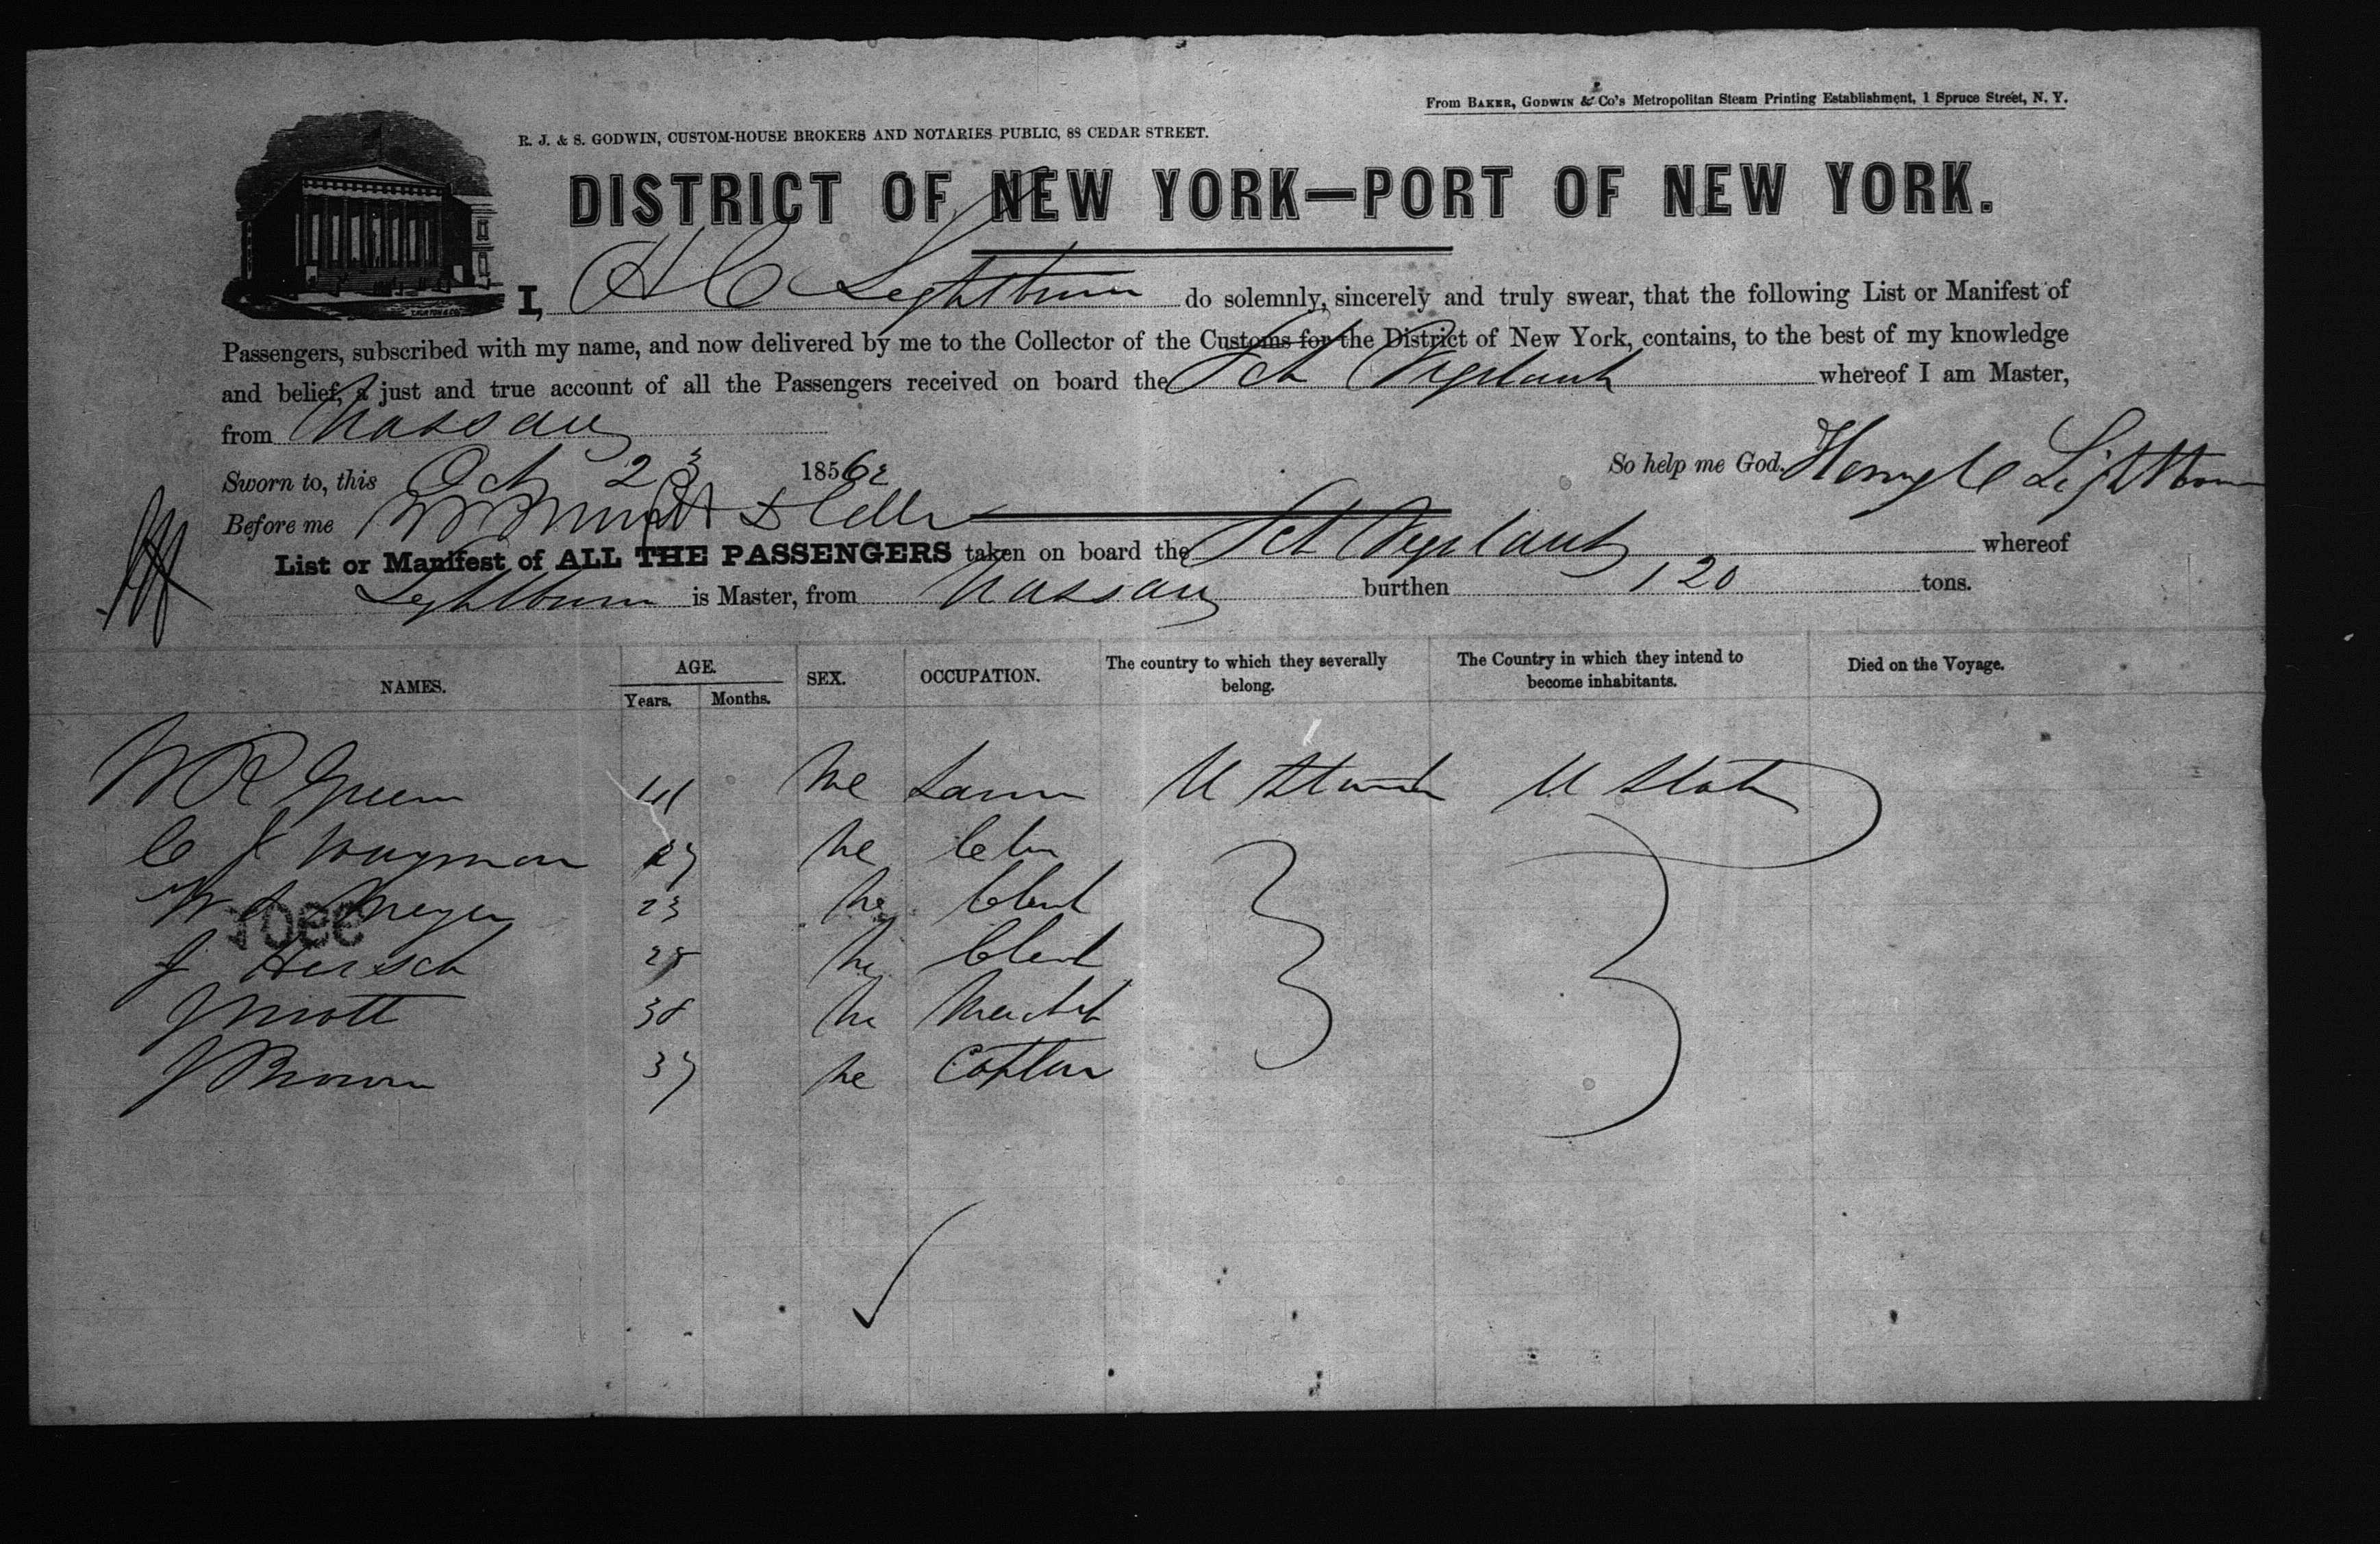 From BAKER, GODWIN & Co's Metropolitan Steam Printing Establishment, 1 Spruce Street, N. Y.
R. J. & S. GODWIN, CUSTOM-HOUSE BROKERS AND NOTARIES PUBLIC, 88 CEDAR STREET.
DISTRICT OF NEW YORK—PORT OF NEW YORK.
I, H C Lightbourn do solemnly, sincerely and truly swear, that the following List or Manifest of
Passengers, subscribed with my name, and now delivered by me to the Collector of the Customs for the District of New York, contains, to the best of my knowledge
and belief, a just and true account of all the Passengers received on board the Sch Vigilant whereof I am Master,
from Nassau
Sworn to, this Oct 23 18562 So help me God. Henry C Lightbourn
Before me
List or Manifest of ALL THE PASSENGERS taken on board the Sch Vigilant whereof
Lightbourn is Master, from Nassau burthen 120 tons.
NAMES. AGE. Years. Months. SEX. OCCUPATION. The country to which they severally belong. The Country in which they intend to become inhabitants. Died on the Voyage.
W R Green 41 Me U States U States
C J Wayman Me
W Meyer 23 Me Clerk
J Hersch 28 Me Clerk
J Mott 38 Me Mercht
J Brown 37 Me Captain